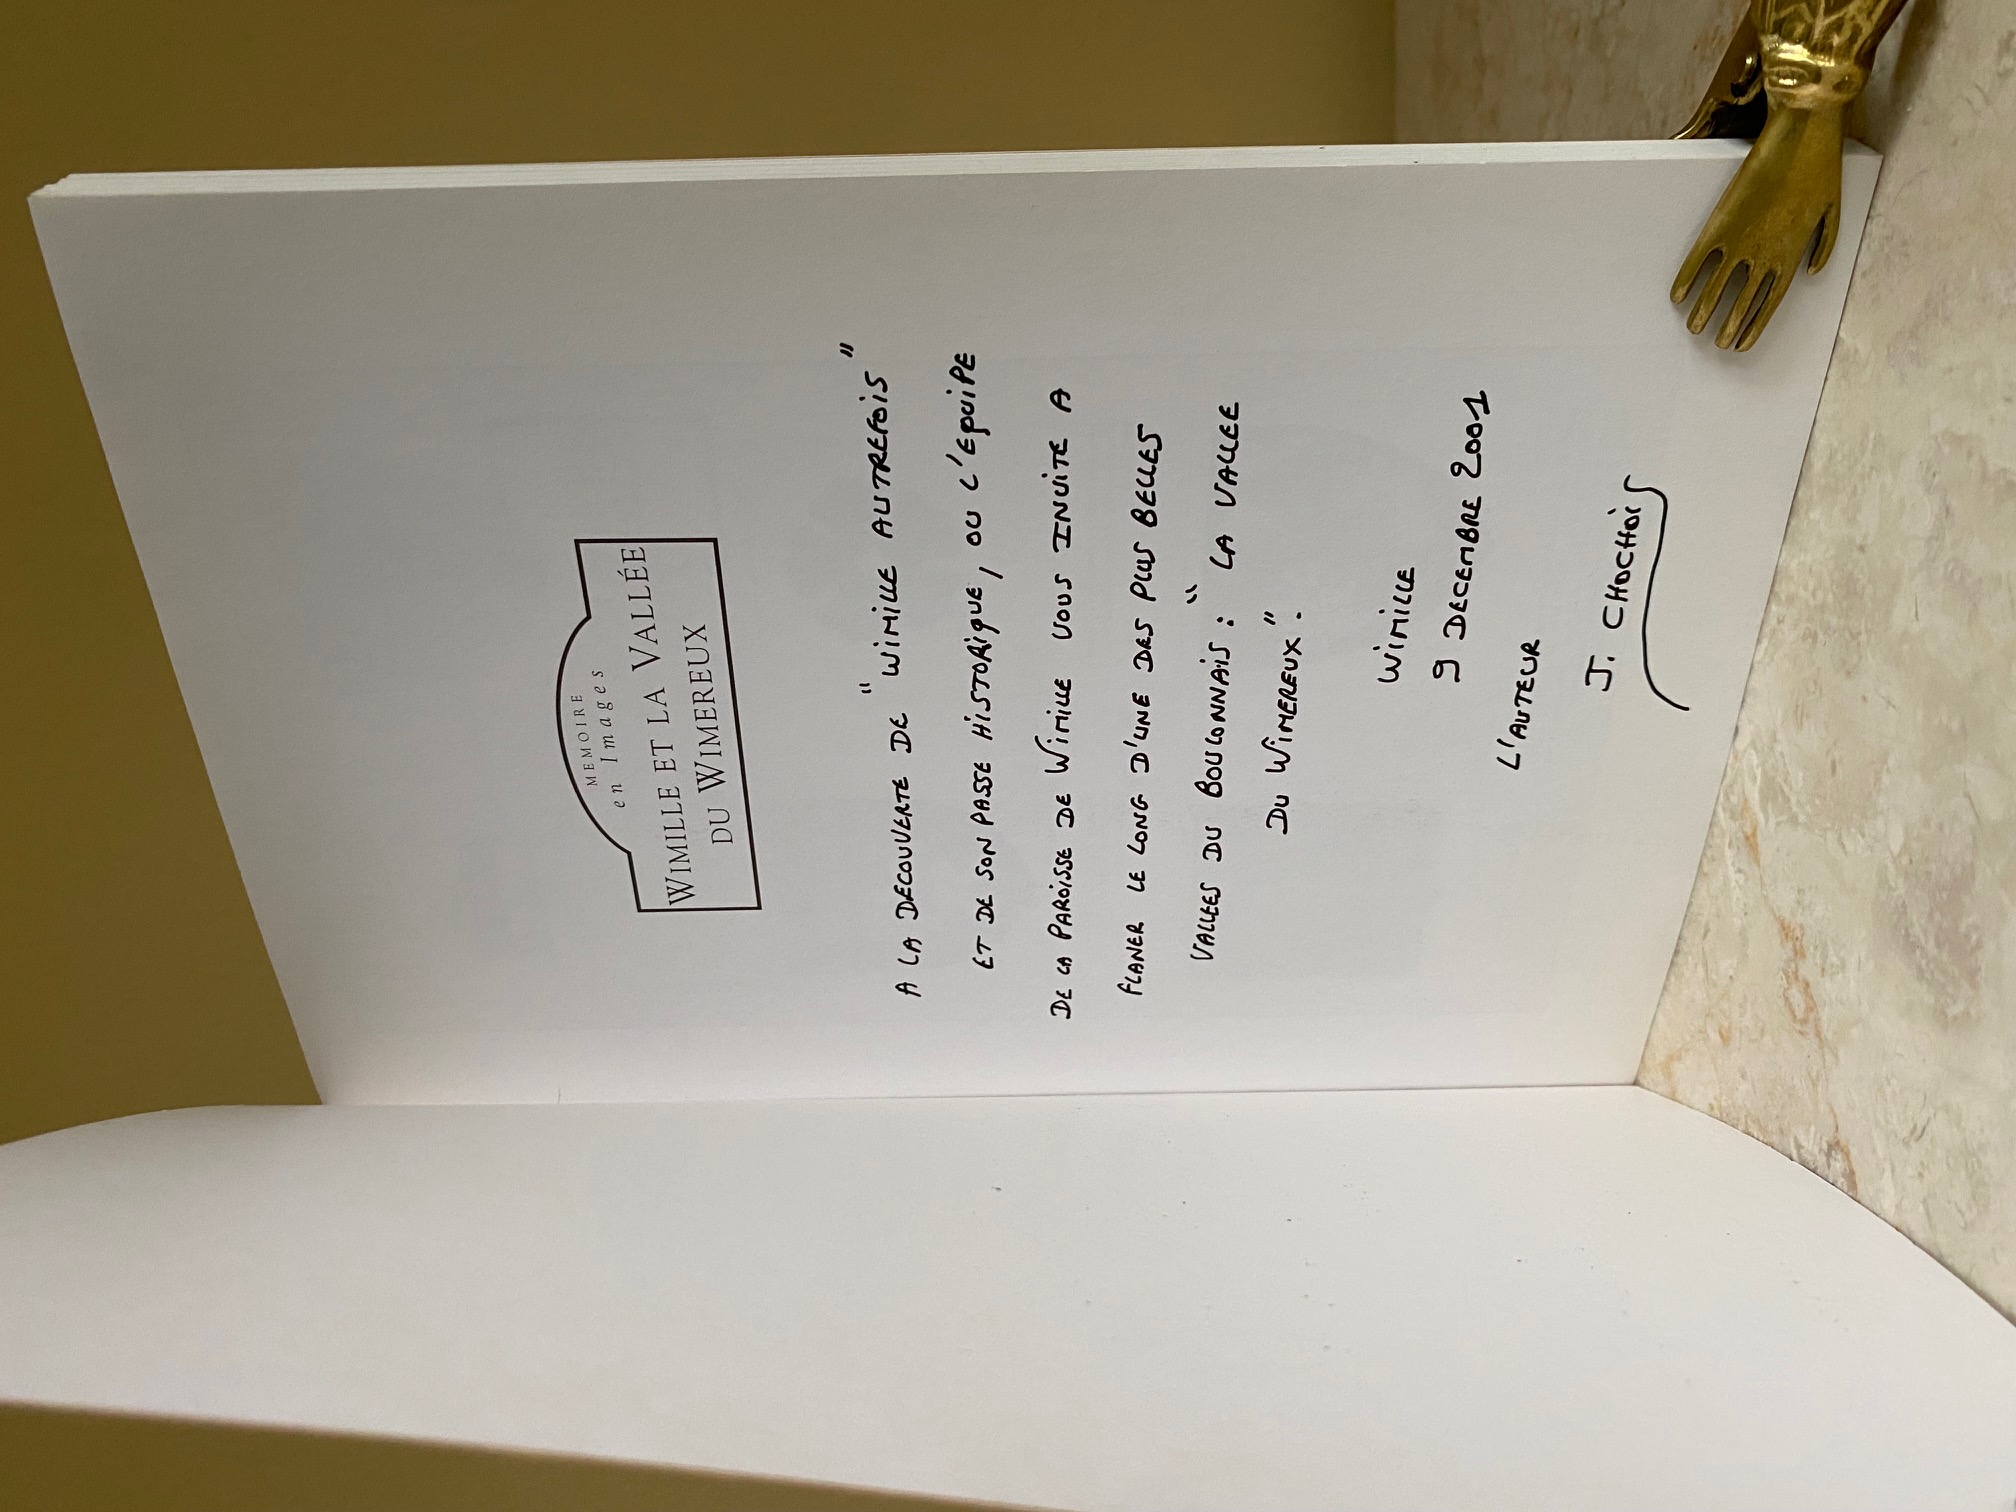 MEMOIRE
en Images
WIMILLE ET LA VALLÉE
DU WIMEREUX
A LA DECOUVERTE DE "WIMILLE AUTREFOIS"
ET DE SON PASSE HISTORIQUE, OU L'EQUIPE
DE LA PAROISSE DE WIMILLE VOUS INVITE A
FLANER LE LONG D'UNE DES PLUS BELLES
VALLEES DU BOULONNAIS : "LA VALLEE
DU WIMEREUX".
WIMILLE
9 DECEMBRE 2001
L'AUTEUR
J. CHOCHOIS